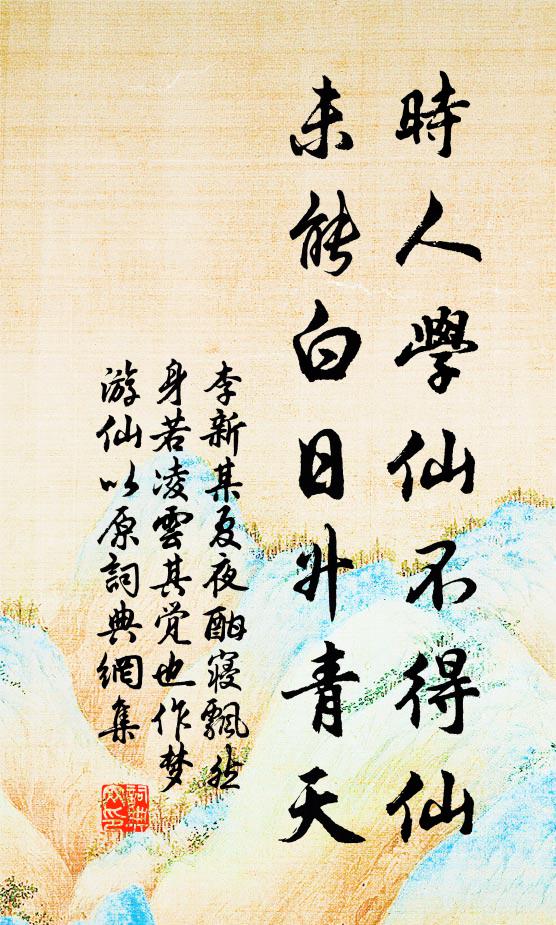 時人學仙不得仙
未能白日升青天
李新某夏夜酣寝飄然
身若凌雲其觉也作梦
游仙以原詞典網集